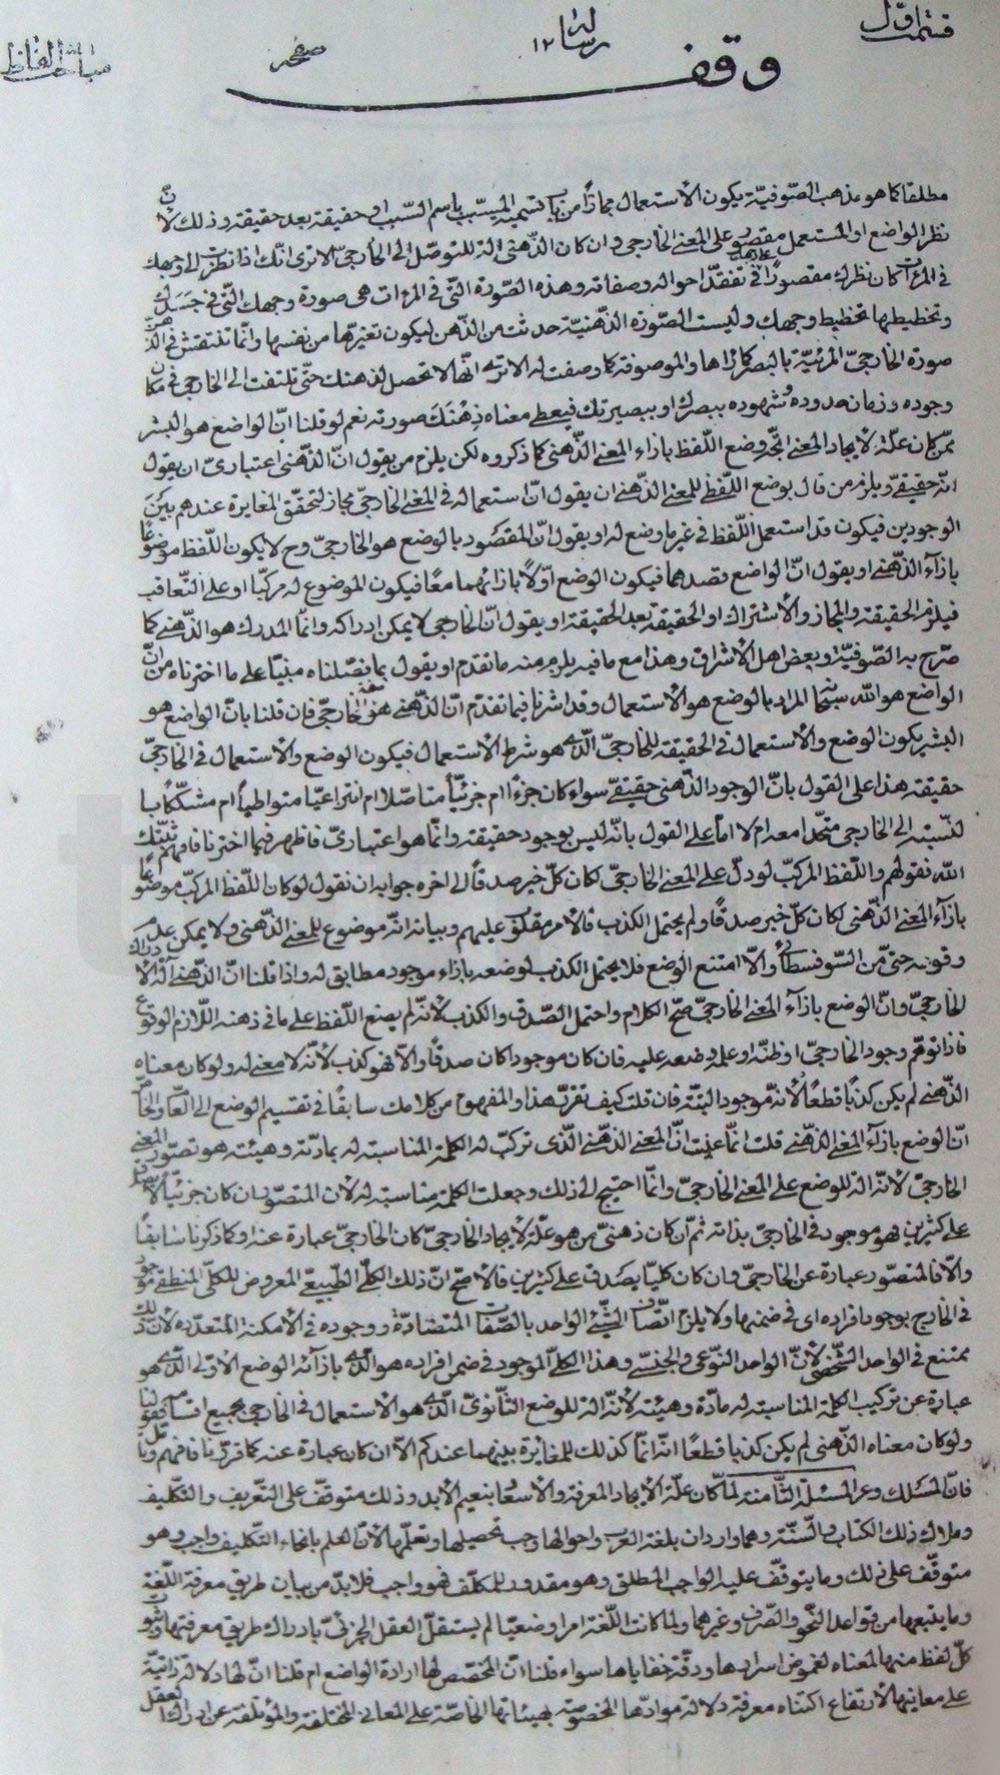 قسمت اول
رسالة ١٢
صفحه
مباحث الفاظ
وقف
مطلقا كما هو مذهب الصّوفيّة يكون الأستعمال مجازًا من باب تسمية المسبّب باسم السّبب او حقيقة بعد حقيقة وذلك لأنّ
نظر الواضع او المستعمل مقصور على المعنى الخارجي وان كان الذّهنى الة للتوصّل الى الخارجىّ الا ترى انّك اذا نظرت الى وجهك
فى المرءات كان نظرك مقصورًا فى تفقّد احواله وصفاته وهذه الصّورة الّتى فى المرءات هى صورة وجهك الّتى فى جسدك
وتخطيطها تخطيط وجهك وليست الصّورة الذّهنيّة حدثت من الذّهن ليكون تغيّرها من نفسها وانّما تنتقش فى الذّهن
صورة الخارجىّ المرئيّة بالبصر كما راها والموصوفة كما وصفت له الا ترى انّها لا تحصل لذهنك حتّى تلتفت الى الخارجى فى مكان
وجوده وزمان حدوده وشهوده ببصرك او ببصيرتك فيعطى معناه ذهنك صورته نعم لو قلنا انّ الواضع هو البشر
ممّن كان علّة لايجاد المعنى اتّجه وضع اللّفظ بازاء المعنى الذّهنى كما ذكروه لكن يلزم من يقول انّ الذّهنى اعتبارىّ ان يقول
انّه حقيقىّ ويلزم من قال بوضع اللّفظ للمعنى الذّهنى ان يقول انّ استعماله فى المعنى الخارجىّ مجاز لتحقّق المغايرة عندهم بين
الوجودين فيكون قد استعمل اللّفظ فى غير ما وضع له او يقول انّ المقصود بالوضع هو الخارجىّ وح لا يكون اللّفظ موضوعًا
بازآء الذّهنى او يقول انّ الواضع قصدهما فيكون الوضع اوّلًا بازائهما معًا فيكون الموضوع له مركّبا او على التّعاقب
فيلزم الحقيقة والمجاز والأشتراك او الحقيقة بعد الحقيقة او يقول انّ الخارجى لا يمكن ادراكه وانّما المدرك هو الذّهنى كما
صرّح به الصّوفيّة وبعض اهل الأشراق وهذا مع ما فيه يلزم منه ما تقدم او يقول بما فصّلناه مبنيّا على ما اخترناه من انّ
الواضع هو الله سبحانه المراد بالوضع هو الأستعمال وقد اشرنا فيما تقدّم انّ الذّهنى هو الخارجىّ فان قلنا بانّ الواضع هو
البشر يكون الوضع والأستعمال فى الحقيقة للخارجىّ الّذى هو شرط الأستعمال فيكون الوضع والأستعمال فى الخارجىّ
حقيقة هذا على القول بانّ الوجود الذّهنى حقيقىّ سواء كان جزءًا ام جزئيّاً متاصّلا ام انتزاعيّا متواطياً ام مشكّكاً با
لنّسبة الى الخارجى متّحدا معه ام لا امّا على القول بانّه ليس بوجود حقيقة وانّما هو اعتبارىّ فاظهر فيما اخترنا فافهم ثبّتك
الله فقولهم واللّفظ المركّب لو دلّ على المعنى الخارجىّ لكان كلّ خبر صدقًا الى اخره جوابه ان نقول لو كان اللّفظ المركّب موضوعًا
بازآء المعنى الذّهنى لكان كلّ خبر صدقًا ولم يحتمل الكذب فالأمر مقلوب عليهم وبيانه انّه موضوع للمعنى الذّهنى ولا يمكن عدم
وقوعه حتّى من السّوفسطائى والّا امتنع الوضع فلا يحتمل الكذب لوضعه بازاء موجود مطابق له واذا قلنا انّ الذّهنى الة لأدراك
الخارجىّ وانّ الوضع بازآء المعنى الخارجىّ صحّ الكلام واحتمل الصّدق والكذب لأنّه لم يضع اللّفظ على ما فى ذهنه اللّازم الوقوع
فاذا توهّم وجود الخارجىّ او ظنّه او علمه وضعه عليه فان كان موجودا كان صدقًا والّا فهو كذب لأنّه لا معنى له ولو كان معناه
الذّهنى لم يكن كذبًا قطعًا لأنّه موجود البتّة فان قلت كيف تقرّر هذا والمفهوم من كلامك سابقًا فى تقسيم الوضع الى العامّ والخاصّ
انّ الوضع بازآء المعنى الذّهنى قلت انّما عنيت انّ المعنى الذّهنى الّذى تركّب له الكلمة المناسبة له بمادّته وهيئته هو تصوّر المعنى
الخارجىّ لأنّه الة للوضع على المعنى الخارجىّ وانّما احتيج الى ذلك وجعلت الكلمة مناسبة له لأن المتصوّر ان كان جزئيًّا لا يصدق
على كثيرين فهو موجود فى الخارجىّ بذاته ثمّ ان كان ذهنىّ من هو علّة لأيجاد الخارجىّ كان الخارجىّ عبارة عنه وكما ذكرنا سابقًا
والّا فالمتصوّر عبارة عن الخارجىّ وان كان كليًّا يصدق على كثيرين فالأصحّ انّ ذلك الكلّى الطّبيعىّ المعروض للكلّى المنطقى موجود
فى الخارج بوجود افراده اى فى ضمنها ولا يلزم اتّصاف الشّئ الواحد بالصّفات المتضادّة ووجوده فى الأمكنة المتعدّده لأنّ ذلك
ممتنع فى الواحد الشّخصى لأنّ الواحد النّوعى والجنسىّ وهذا الكلّى الموجود فى ضمن افراده هو الّذى بازآئه الوضع الاوّلى الّذى هو
عبارة عن تركيب الكلمة المناسبة له مادّة وهيئة لأنّه الة للوضع الثّانوىّ الّذى هو الأستعمال فى الخارجى بجميع اقسامه فقولنا
ولو كان معناه الذّهنى لم يكن كذبا قطعًا انّه انّما كذلك للمغايرة بينهما عندكم الّا ان كان عبارة عنه كما قرّرنا فافهم وتأمّل
فانّ المسلك وعر المسئلة الثّامنة لمّا كان علّة الأيجاد المعرفة والأسعاد بنعيم الأبد وذلك متوقّف على التّعريف والتّكليف
وملاك ذلك الكتاب والسّنّة وهما واردان بلغة العرب واحوالها وجب تحصيلها وتعلّمها لأنّ العلم بانحاء التّكليف واجب وهو
متوقّف على ذلك وما يتوقّف عليه الواجب المطلق وهو مقدور للمكلّف فهو واجب فلا بدّ من بيان طريق معرفة اللّغة
وما يتبعها من قواعد النّحو والصّرف وغيرهما ولما كانت اللّغة امرا وضعيّا لم يستقلّ العقل الجزئىّ بادراك طريق معرفتها وثبوت
كلّ لفظ منها لمعناه لغموض اسرارها ودقّة خفاياها سواء قلنا انّ المخصّص لها ارادة الواضع ام قلنا انّ لها دلالة ذاتيّة
على معانيها لأرتفاع اكتناه معرفة دلالة موادّها المخصوصة بهيئاتها الخاصّة على المعانى المختلفة والمؤتلفة عن ادراك العقل